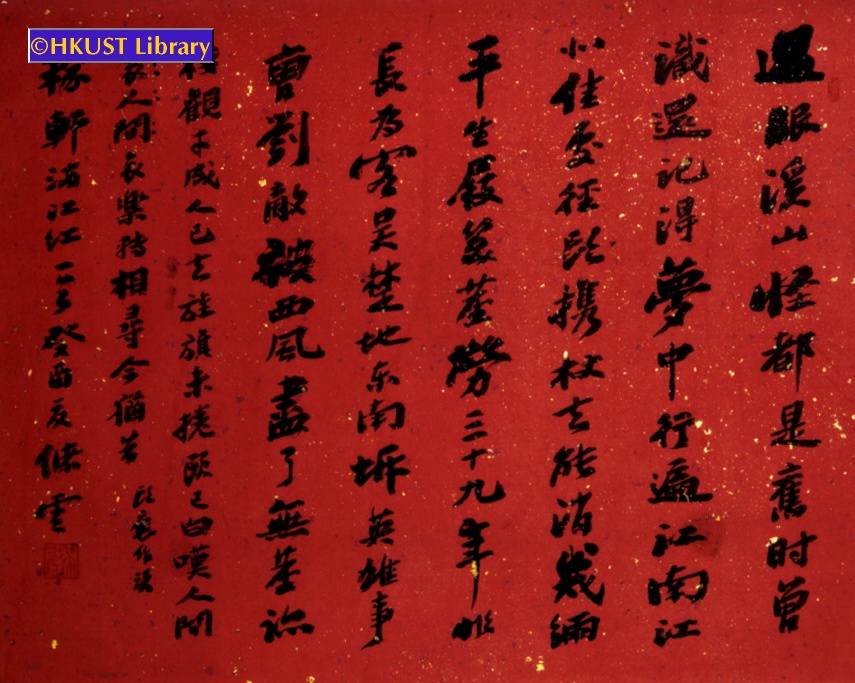 ©HKUST Library
過眼溪山怪都是舊时曾
識還記得夢中行遍江南江
北佳處徑須携杖去能消幾緉
平生屐笑塵勞三十九年非
長为客吳楚地东南坼英雄事
曹劉敵被西風盡了無塵跡
樓觀才成人已去旌旗未捲頭已白嘆人間
人間哀樂轉相尋今猶昔
稼軒滿江红一首癸酉夏继雲